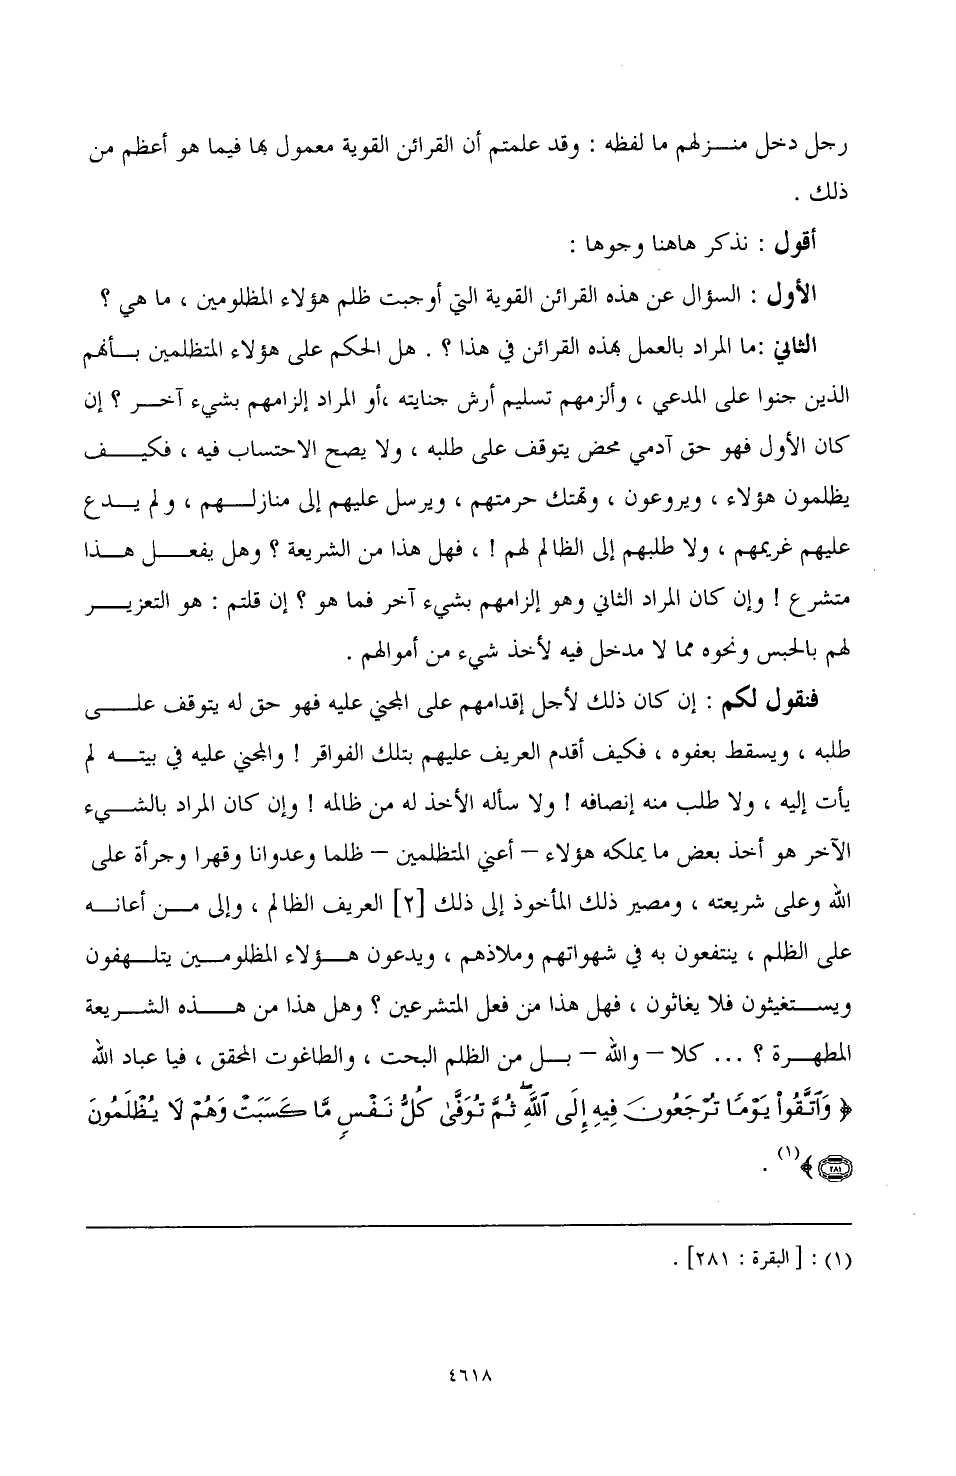 رجل دخل منـــزلهم ما لفظه : وقد علمتم أن القرائن القوية معمول بها فيما هو أعظم من
ذلك .
أقول : نذكر هاهنا وجوها :
الأول : السؤال عن هذه القرائن القوية التي أوجبت ظلم هؤلاء المظلومين ، ما هي ؟
الثاني :ما المراد بالعمل بهذه القرائن في هذا ؟ . هل الحكم على هؤلاء المتظلمين بـــأنهم
الذين جنوا على المدعي ، وألزمهم تسليم أرش جنايته ،أو المراد إلزامهم بشيء آخـــر ؟ إن
كان الأول فهو حق آدمي محض يتوقف على طلبه ، ولا يصح الاحتساب فيه ، فكيـــف
يظلمون هؤلاء ، ويروعون ، وتهتك حرمتهم ، ويرسل عليهم إلى منازلـــهم ، ولم يـــدع
عليهم غريمهم ، ولا طلبهم إلى الظالم لهم ! ، فهل هذا من الشريعة ؟ وهل يفعـــل هـــذا
متشرع ! وإن كان المراد الثاني وهو إلزامهم بشيء آخر فما هو ؟ إن قلتم : هو التعزيـــر
لهم بالحبس ونحوه مما لا مدخل فيه لأخذ شيء من أموالهم .
فنقول لكم : إن كان ذلك لأجل إقدامهم على المجني عليه فهو حق له يتوقف علـــى
طلبه ، ويسقط بعفوه ، فكيف أقدم العريف عليهم بتلك الفواقر ! والمجني عليه في بيتـــه لم
يأت إليه ، ولا طلب منه إنصافه ! ولا سأله الأخذ له من ظالمه ! وإن كان المراد بالشـــيء
الآخر هو أخذ بعض ما يملكه هؤلاء – أعني المتظلمين – ظلما وعدوانا وقهرا وجرأة على
الله وعلى شريعته ، ومصير ذلك المأخوذ إلى ذلك [٢] العريف الظالم ، وإلى مـــن أعانـــه
على الظلم ، ينتفعون به في شهواتهم وملاذهم ، ويدعون هـــؤلاء المظلومـــين يتلـــهفون
ويســـتغيثون فلا يغاثون ، فهل هذا من فعل المتشرعين ؟ وهل هذا من هـــذه الشـــريعة
المطهـــرة ؟ ... كلا – والله – بـــل من الظلم البحت ، والطاغوت المحقق ، فيا عباد الله
﴿ وَٱتَّقُوا۟ يَوْمًا تُرْجَعُونَ فِيهِ إِلَى ٱللَّهِ ۖ ثُمَّ تُوَفَّىٰ كُلُّ نَفْسٍ مَّا كَسَبَتْ وَهُمْ لَا يُظْلَمُونَ
٢٨١ ﴾(١) .
(١) : [ البقرة : ٢٨١] .
٤٦١٨